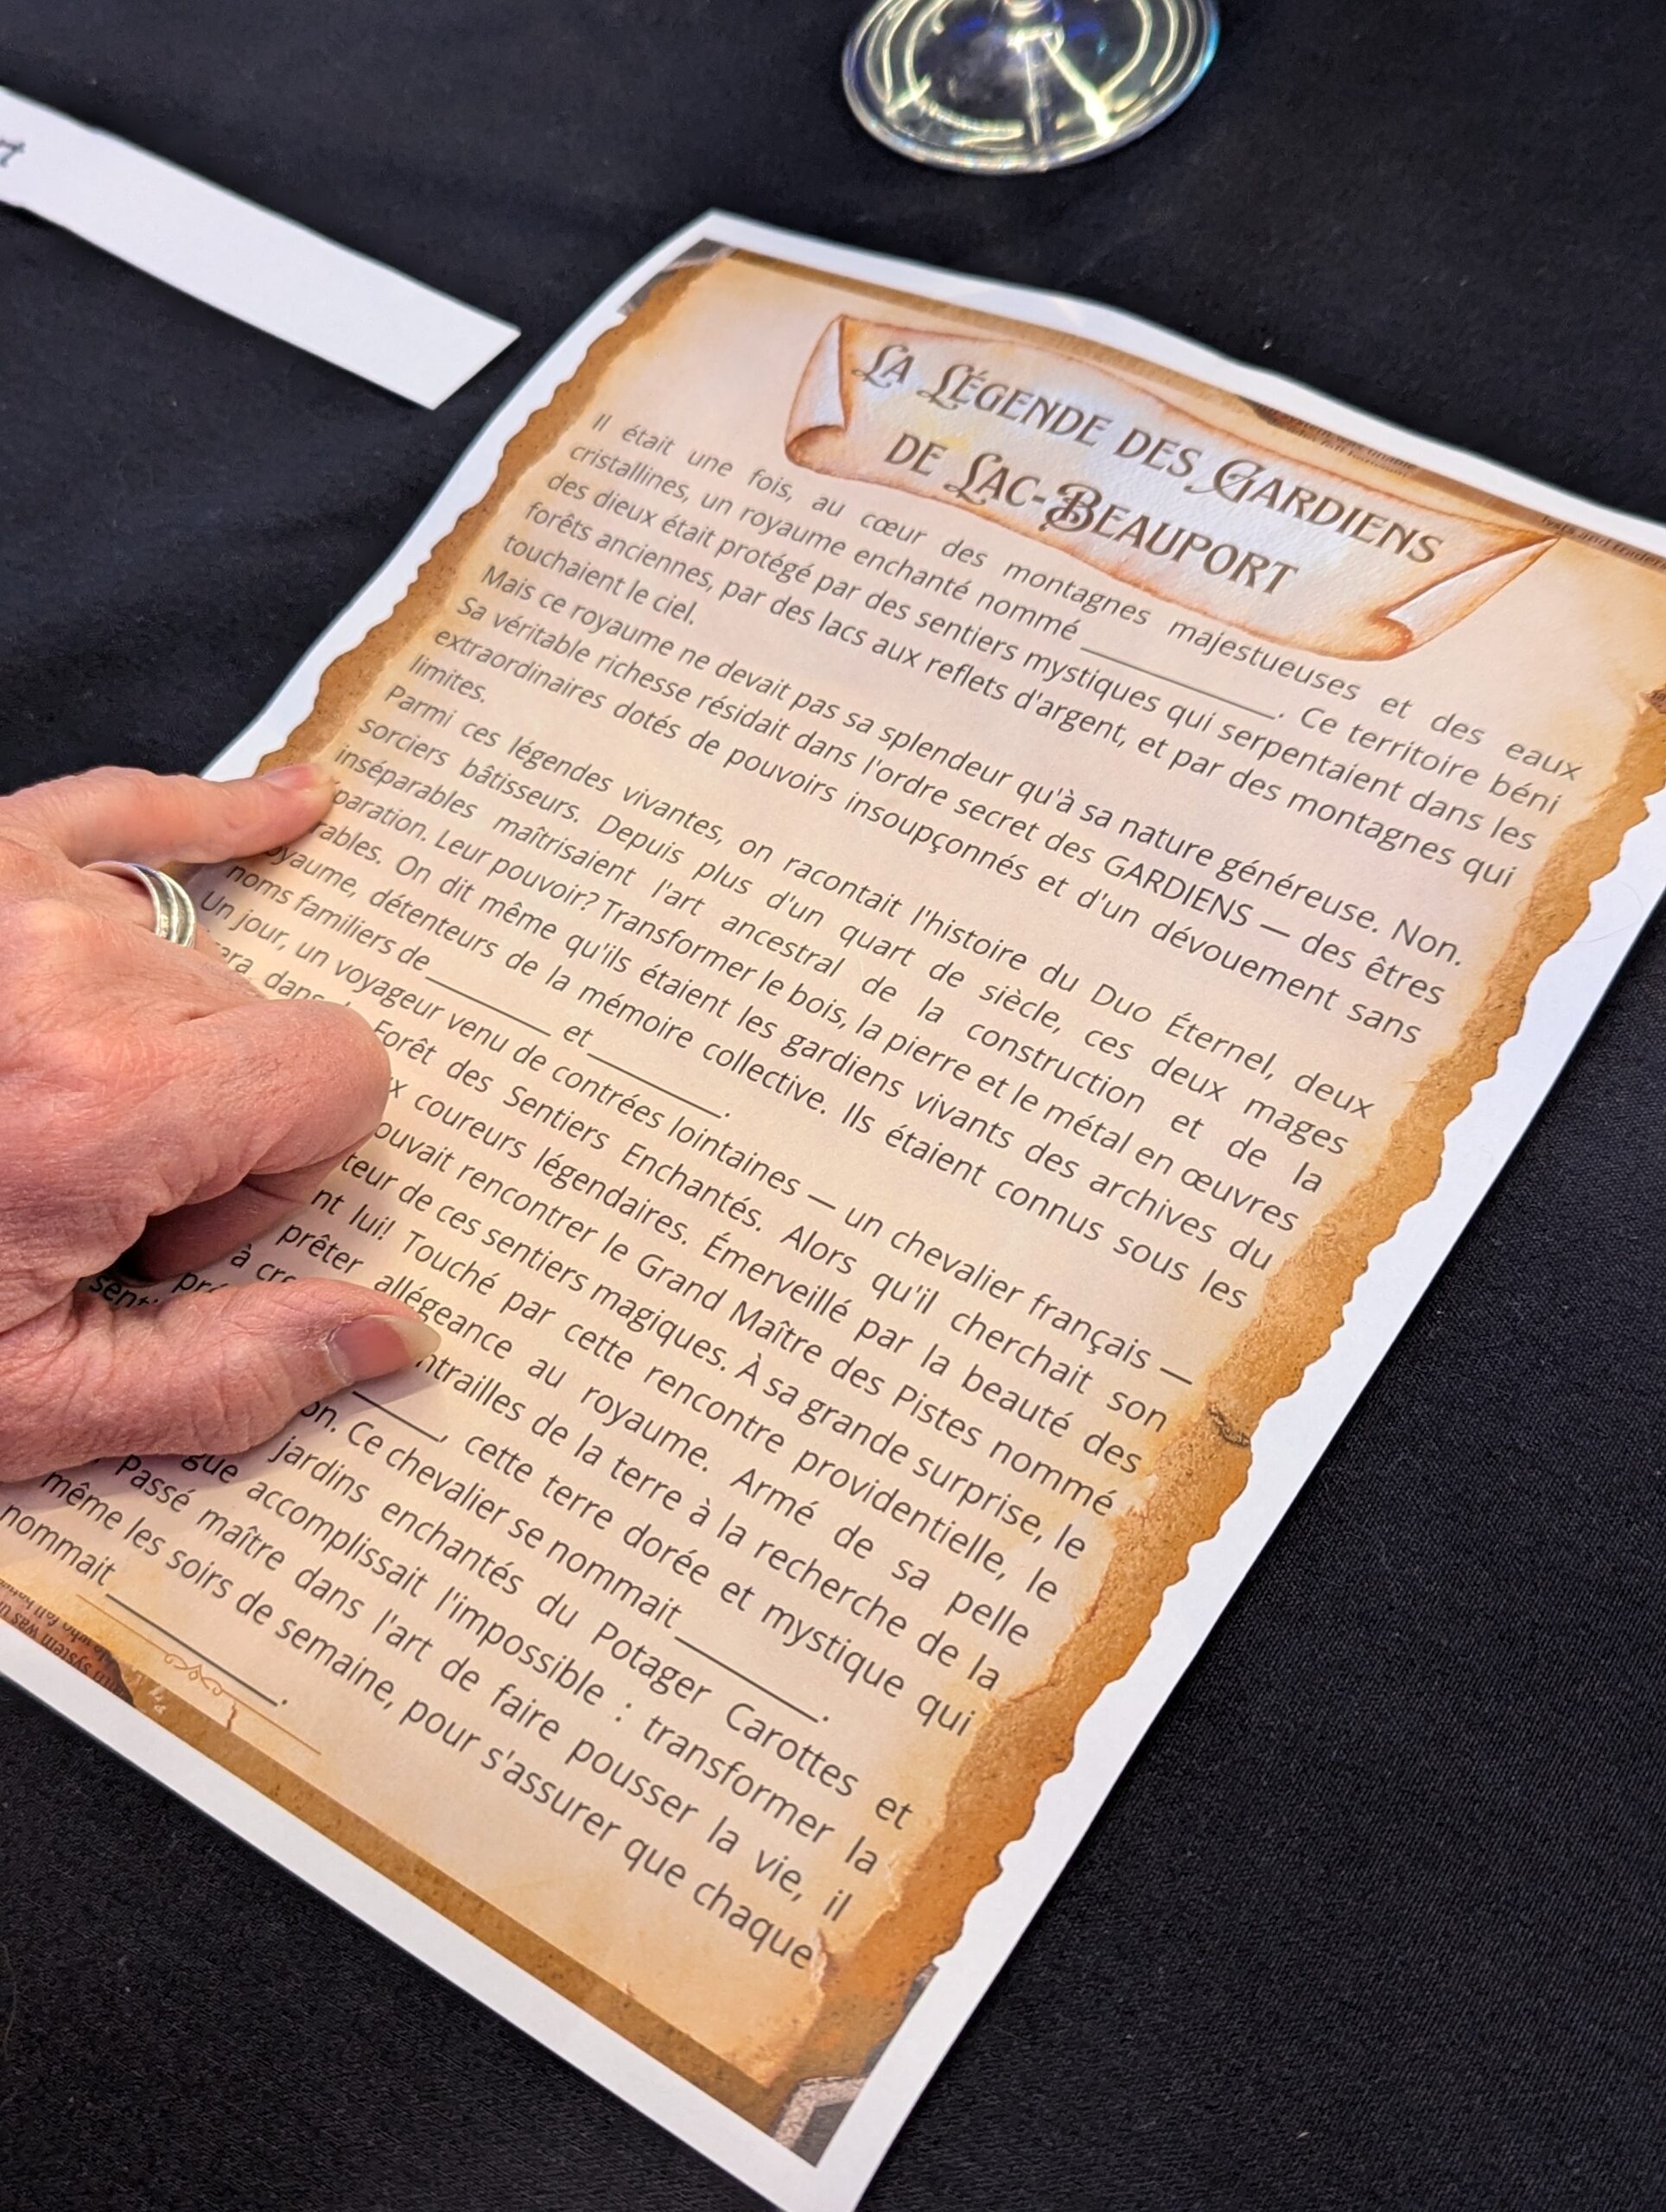 LA LÉGENDE DES GARDIENS
DE LAC-BEAUPORT
Il était une fois, au cœur des montagnes majestueuses et des eaux
cristallines, un royaume enchanté nommé ____________. Ce territoire béni
des dieux était protégé par des sentiers mystiques qui serpentaient dans les
forêts anciennes, par des lacs aux reflets d'argent, et par des montagnes qui
touchaient le ciel.
Mais ce royaume ne devait pas sa splendeur qu'à sa nature généreuse. Non.
Sa véritable richesse résidait dans l'ordre secret des GARDIENS — des êtres
extraordinaires dotés de pouvoirs insoupçonnés et d'un dévouement sans
limites.
Parmi ces légendes vivantes, on racontait l'histoire du Duo Éternel, deux
sorciers bâtisseurs. Depuis plus d'un quart de siècle, ces deux mages
inséparables maîtrisaient l'art ancestral de la construction et de la
paration. Leur pouvoir? Transformer le bois, la pierre et le métal en œuvres
rables. On dit même qu'ils étaient les gardiens vivants des archives du
oyaume, détenteurs de la mémoire collective. Ils étaient connus sous les
noms familiers de________ et_________.
Un jour, un voyageur venu de contrées lointaines — un chevalier français —
era dans Forêt des Sentiers Enchantés. Alors qu'il cherchait son
x coureurs légendaires. Émerveillé par la beauté des
ouvait rencontrer le Grand Maître des Pistes nommé
teur de ces sentiers magiques. À sa grande surprise, le
nt lui! Touché par cette rencontre providentielle, le
prêter allégeance au royaume. Armé de sa pelle
à ntrailles de la terre à la recherche de la
______, cette terre dorée et mystique qui
on. Ce chevalier se nommait__________.
jardins enchantés du Potager Carottes et
gue accomplissait l'impossible : transformer la
Passé maître dans l'art de faire pousser la vie, il
même les soirs de semaine, pour s'assurer que chaque
nommait____________.